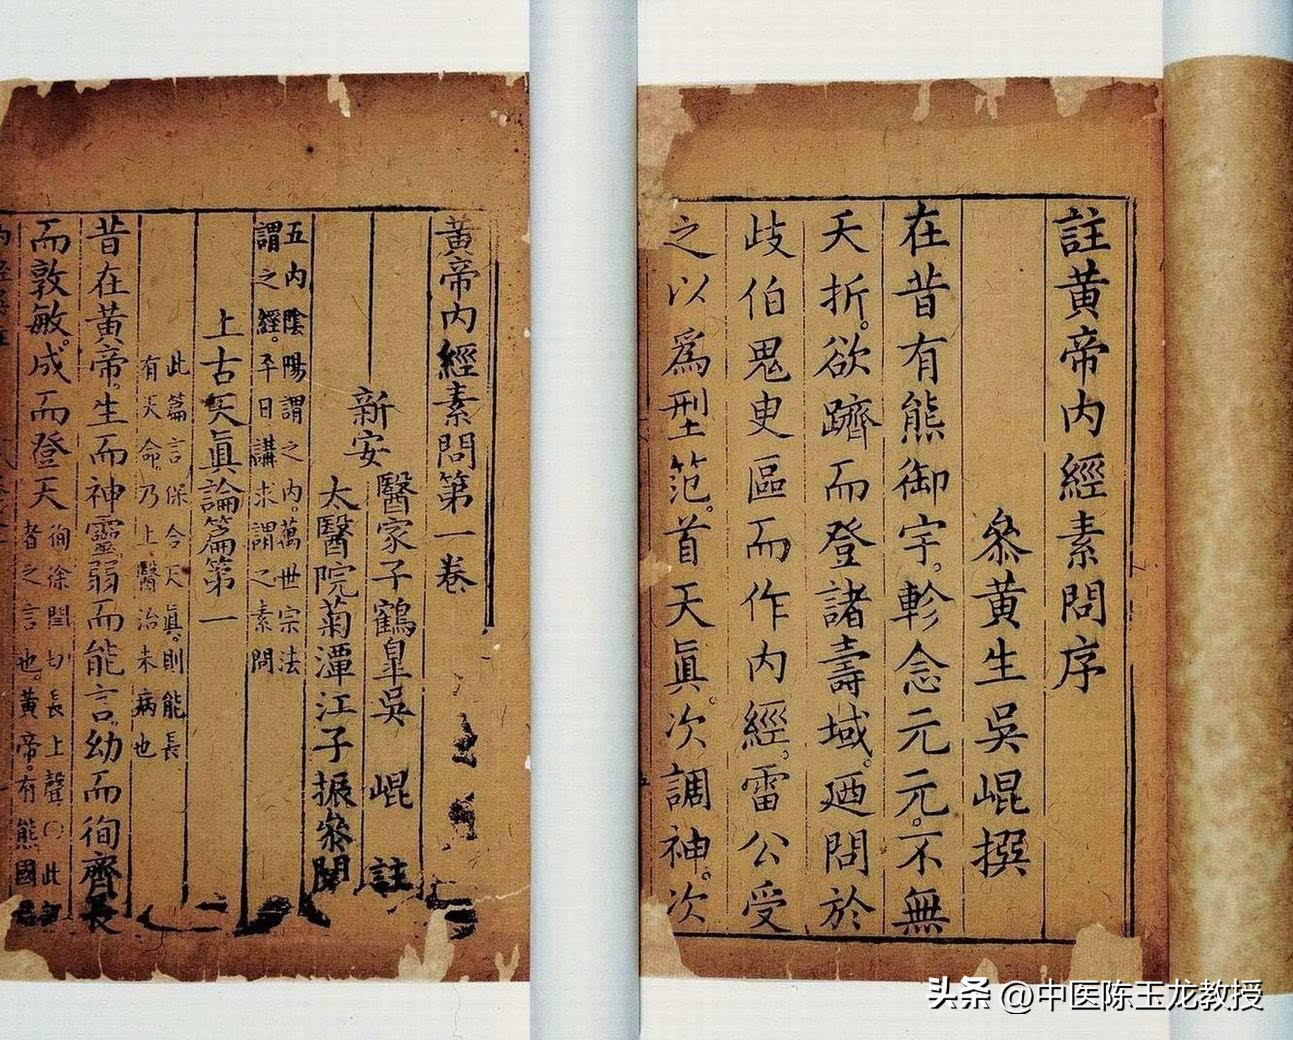 註黄帝内經素問序
叅黄生吳崐撰
在昔有熊御宇。軫念元元。不無
夭折。欲躋而登諸壽域。廼問於
歧伯鬼臾區而作内經。雷公受
之以爲型范。首天眞。次調神。次
黄帝内經素問第一卷
新安
醫家子鶴皐吳崐註
太醫院菊潭江子振叅閱
五内陰陽謂之内。萬世宗法
謂之經。平日講求謂之素問
上古天眞論篇第一
此篇言保合天眞。則能長
有天命。乃上醫治未病也
昔在黄帝。生而神靈。弱而能言。幼而徇齊。長
而敦敏。成而登天
徇徐閏切長上聲○此
者之言也。黄帝。有熊國
头条 @中医陈玉龙教授